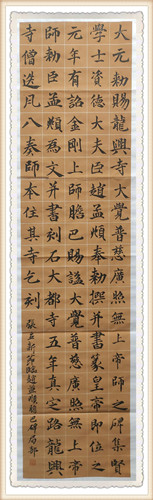 大元勅賜龍興寺大覺普慈廣照無上帝師之碑集賢
學士資德大夫臣趙孟頫奉勅撰并書篆皇帝即位之
元年有詔金剛上師膽巴賜謚大覺普慈廣照無上帝
師勅臣孟頫為文并書刻石大都寺五年真定路龍興
寺僧迭凡八奏師本住其寺乞刻
臨趙孟頫膽巴碑局部